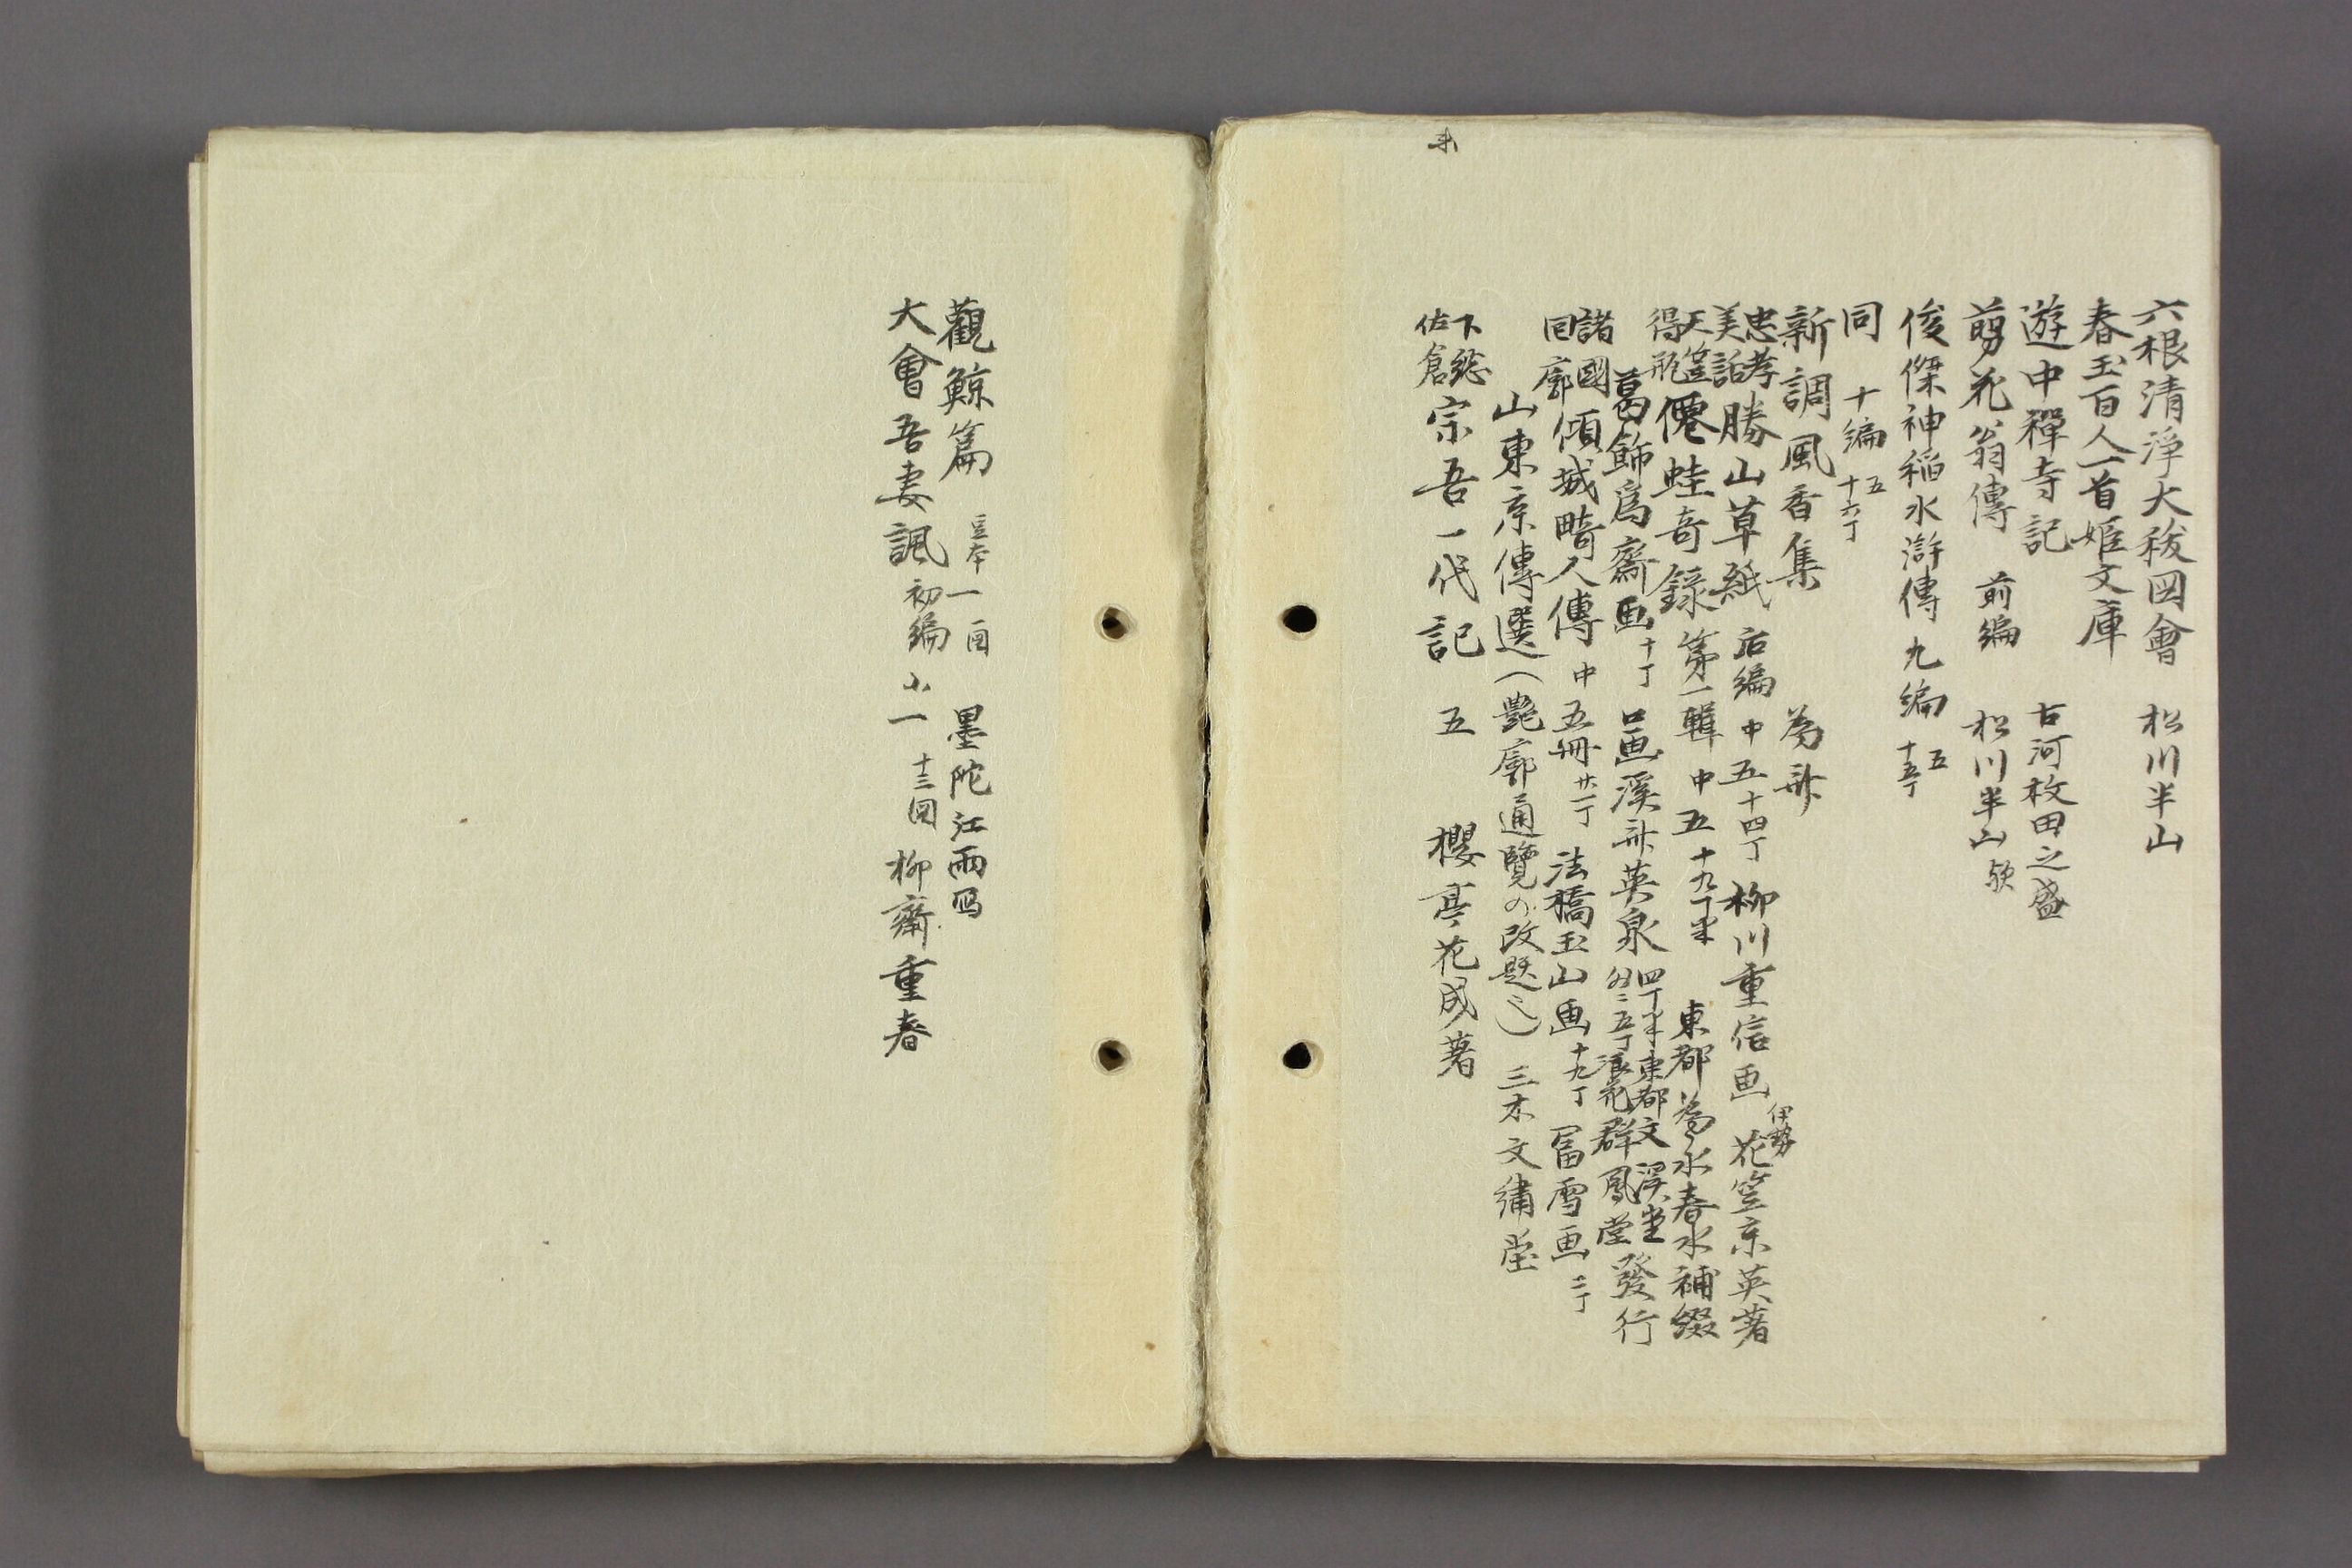 六根清淨大秡図會 松川半山
春玉百人一首姫文庫
遊中禪寺記 古河枚田之盛
剪花翁傳 前編 松川半山
俊傑神稲水滸傳 九編 五 十五丁
同 十編 五 十六丁
新調風香集 為斎
忠孝美話 勝山草紙 后編 中五 十四丁 柳川重信画 伊勢 花笠京英著
天筵得瓶 僊蛙奇録 第一輯 中五 十九丁半 東都 為永春水補綴
葛飾為齋画 十丁 口画溪斎英泉 四丁半 東都文溪堂 浪花群鳳堂 發行
諸國回廓 傾城畸人傳 中五冊 廿一丁 法橋玉山画 十九丁 冨雪画 二丁
山東京傳選（艶廓通覽の改題〻） 三木文繍堂
下総佐倉 宗吾一代記 五 櫻亭花成著
観鯨篇 豆本一 図 墨陀江雨
大會吾妻諷 初編 小一 十三図 柳齋重春